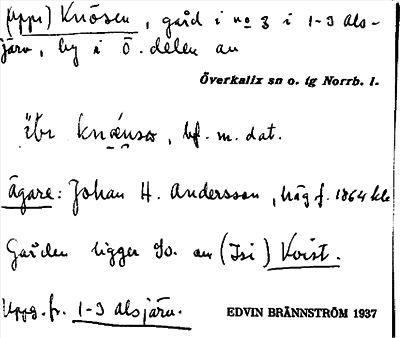 (Uppi) Knösen, gård i no 3 i 1-3 Als-
järv, by i Ö. delen av
Överkalix sn o. tg Norrb. l.
bf. m. dat.
Ägare: Johan H. Andersson, häg f. 1864
Gården ligger So. om (Isi) Kvist.
Uppg. fr. 1-3 Alsjärv.
EDVIN BRÄNNSTRÖM 1937